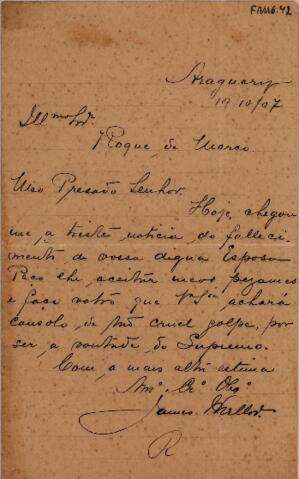 FRM6.42
Araguary
19/10/07
Illmo Snr.
Roque de Marco.
Meo Presado Senhor.
Hoje chegou
me, a triste noticia do falleci-
mento de vossa digna Esposa
Peco lhe, aceitar meos pezames
e faco votos que Va Sia achará
consolo, de tão cruel golpe, por
ser, a vontade do Supremo.
Com, a mais alta estima
Amo Cro Obgo
James
R